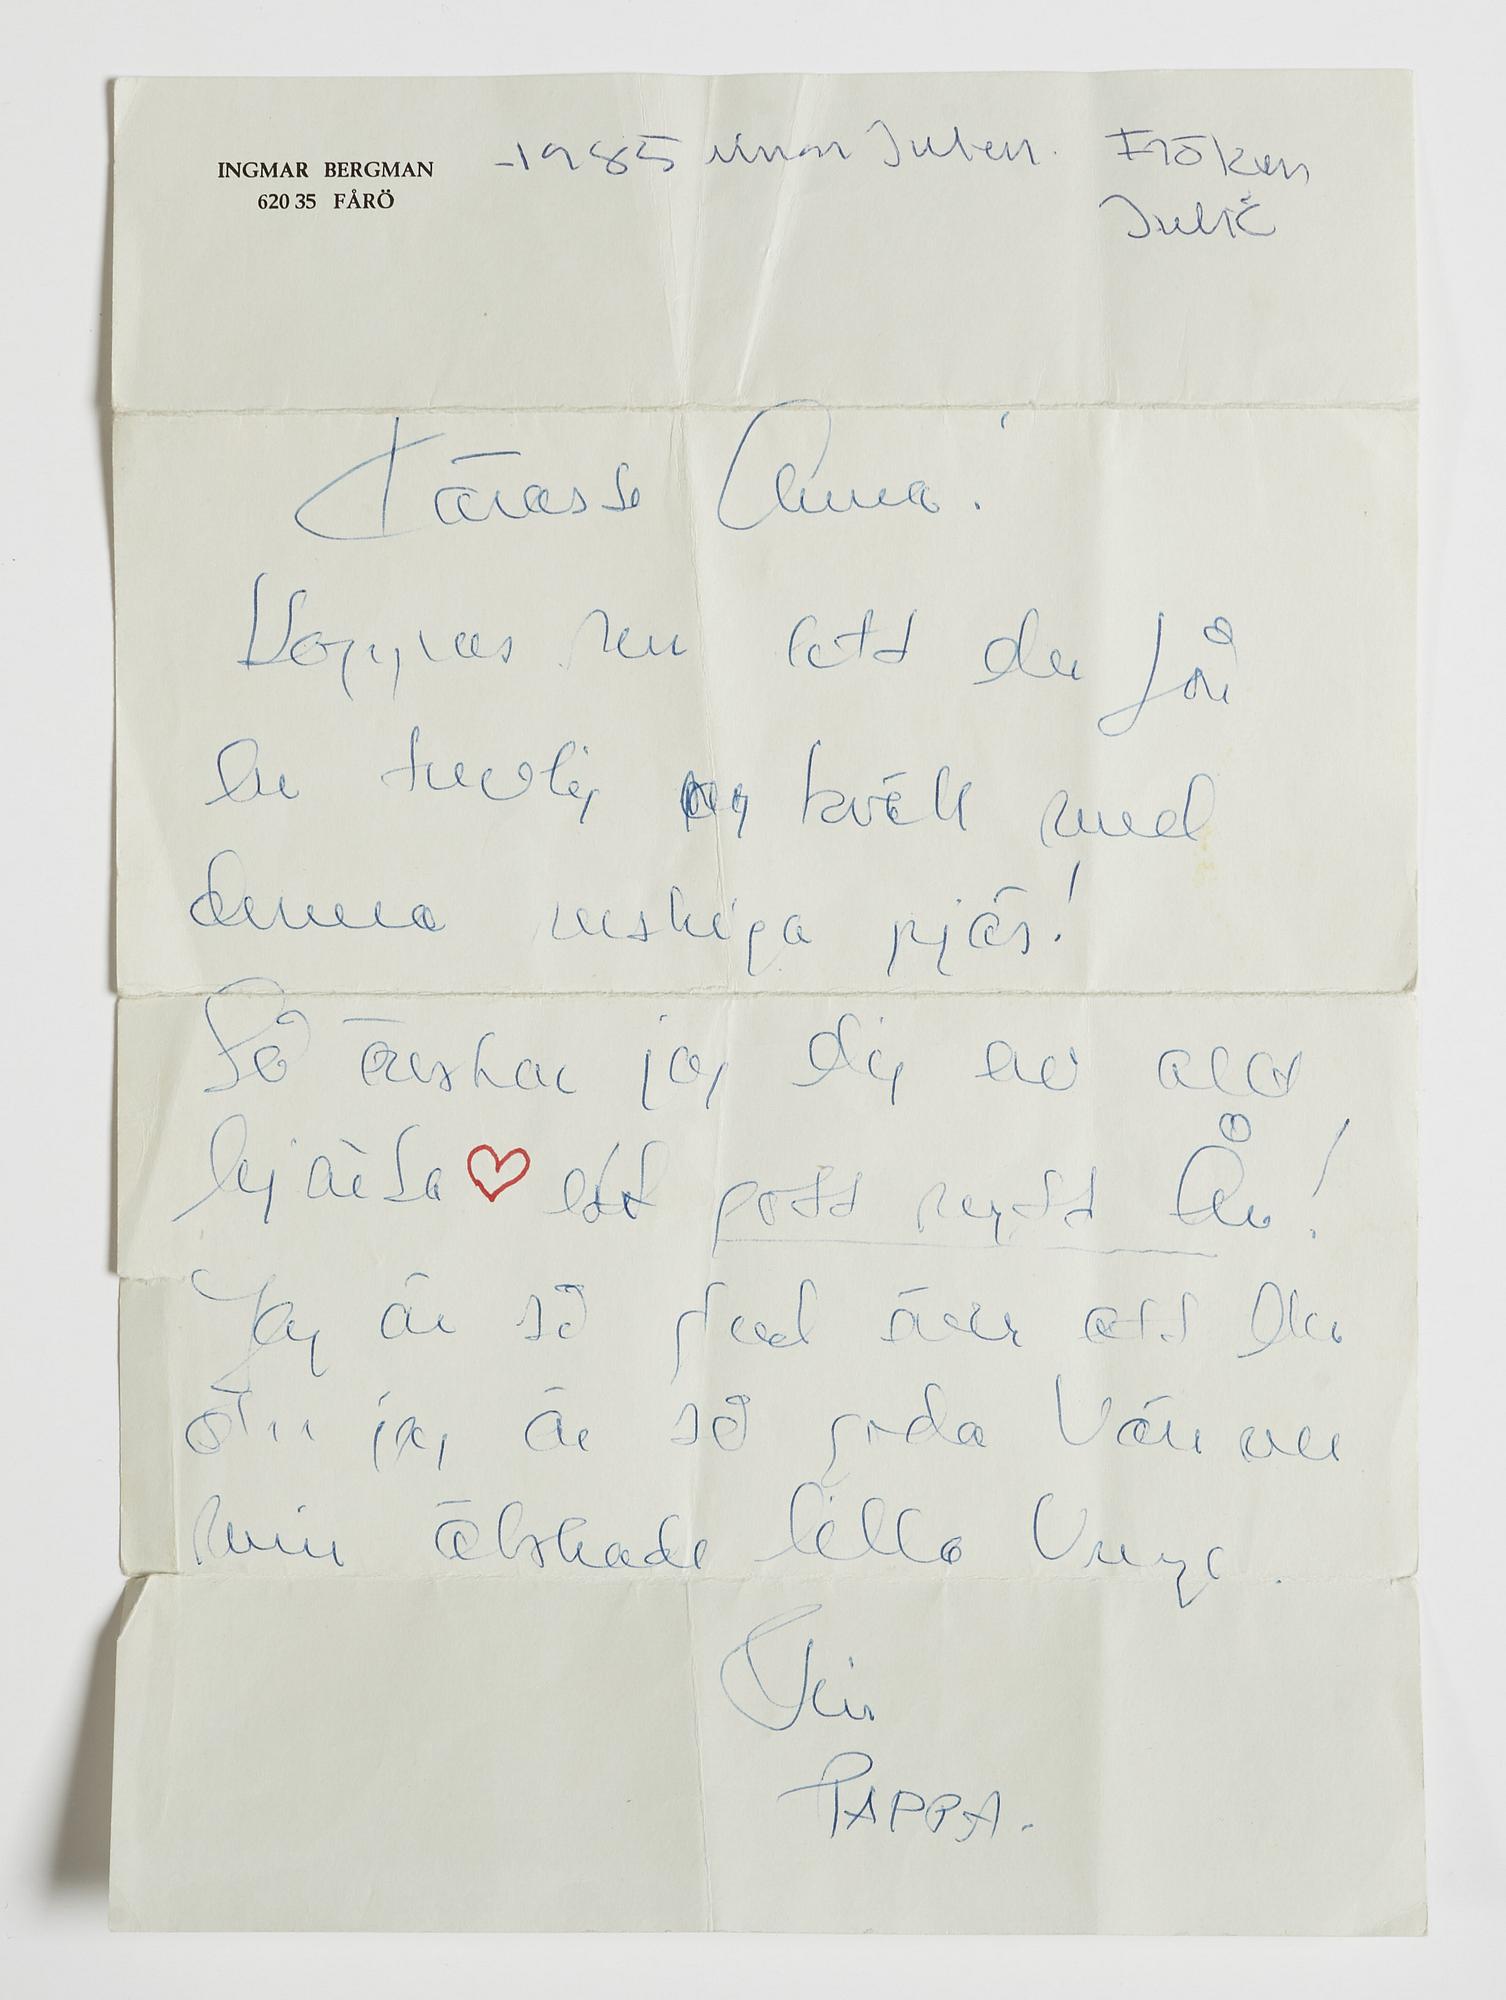 INGMAR BERGMAN
620 35 FÅRÖ
-1985 innan Julen. Fröken
Julie
Käraste Anna!
Hoppas nu att du får
en trevlig kväll med
denna ruskiga pjäs!
Så önskar jag dig av allt
hjärta ett gott nytt År!
Jag är så glad över att du
och jag är så goda Vänner
min älskade lilla Unge.
Din
PAPPA.